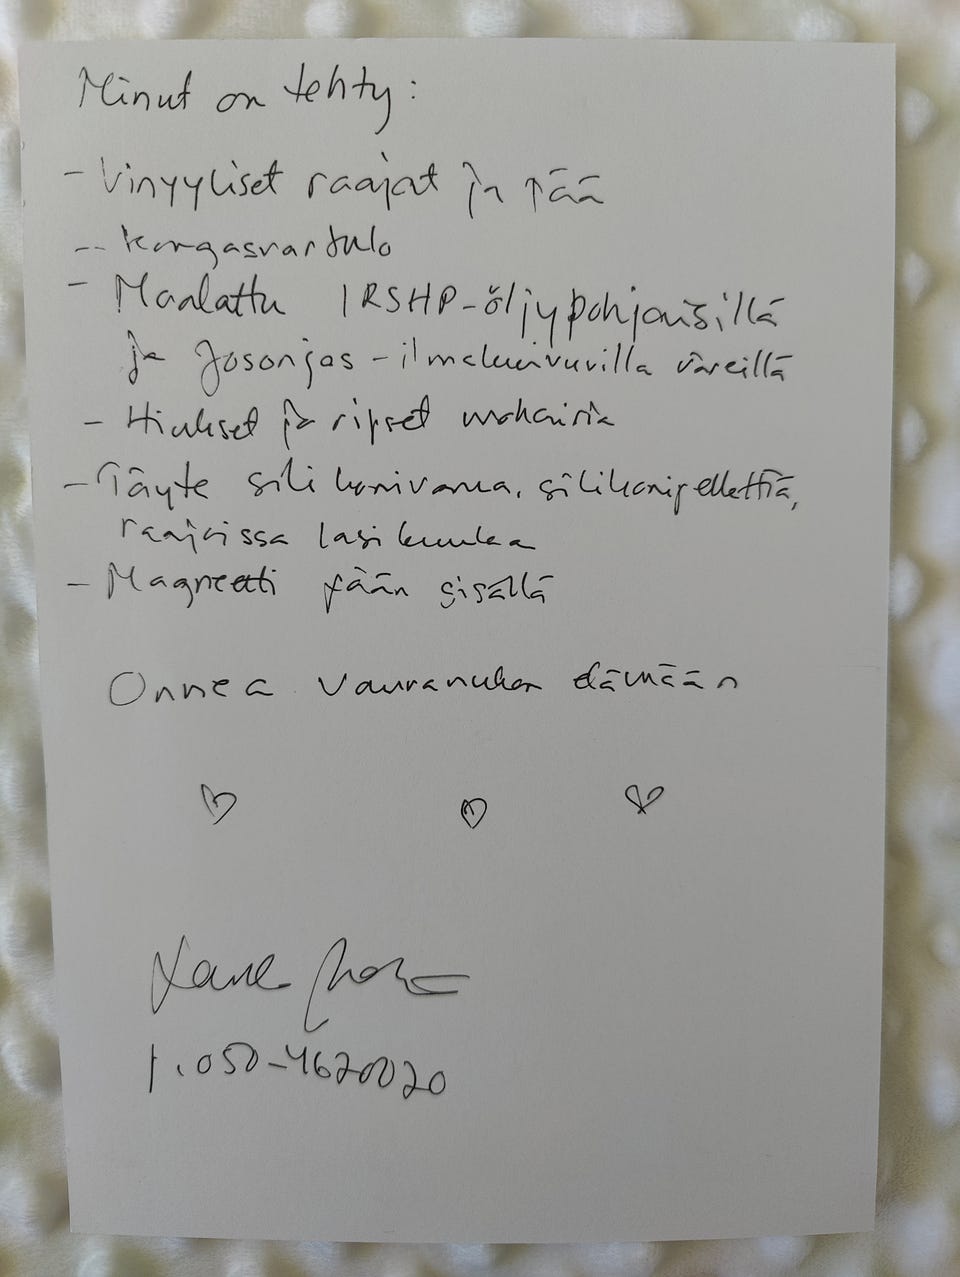 Minut on tehty:
- Vinyyliset raajat ja pää
- Kangasvartalo
- Maalattu IRSHP-öljypohjaisilla
ja Josonjas-ilmakuivuvilla väreillä
- Hiukset ja ripset mohairia
- Täyte silikonivanua, silikonipellettiä,
raajoissa lasikuulaa
- Magneetti pään sisällä
Onnea vauvanuken elämään
p. 050-4620020